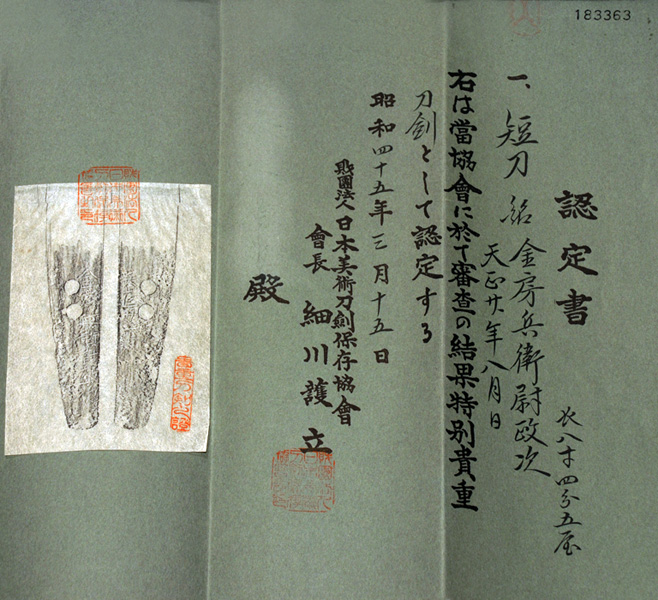 183363
認定書
一、短刀 銘 金房兵衛尉政次
天正廿年八月日
長八寸四分五厘
右は當協會に於て審査の結果特別貴重
刀劍として認定する
昭和四十五年三月十五日
財團法人日本美術刀劍保存協會
會長 細川護立
殿